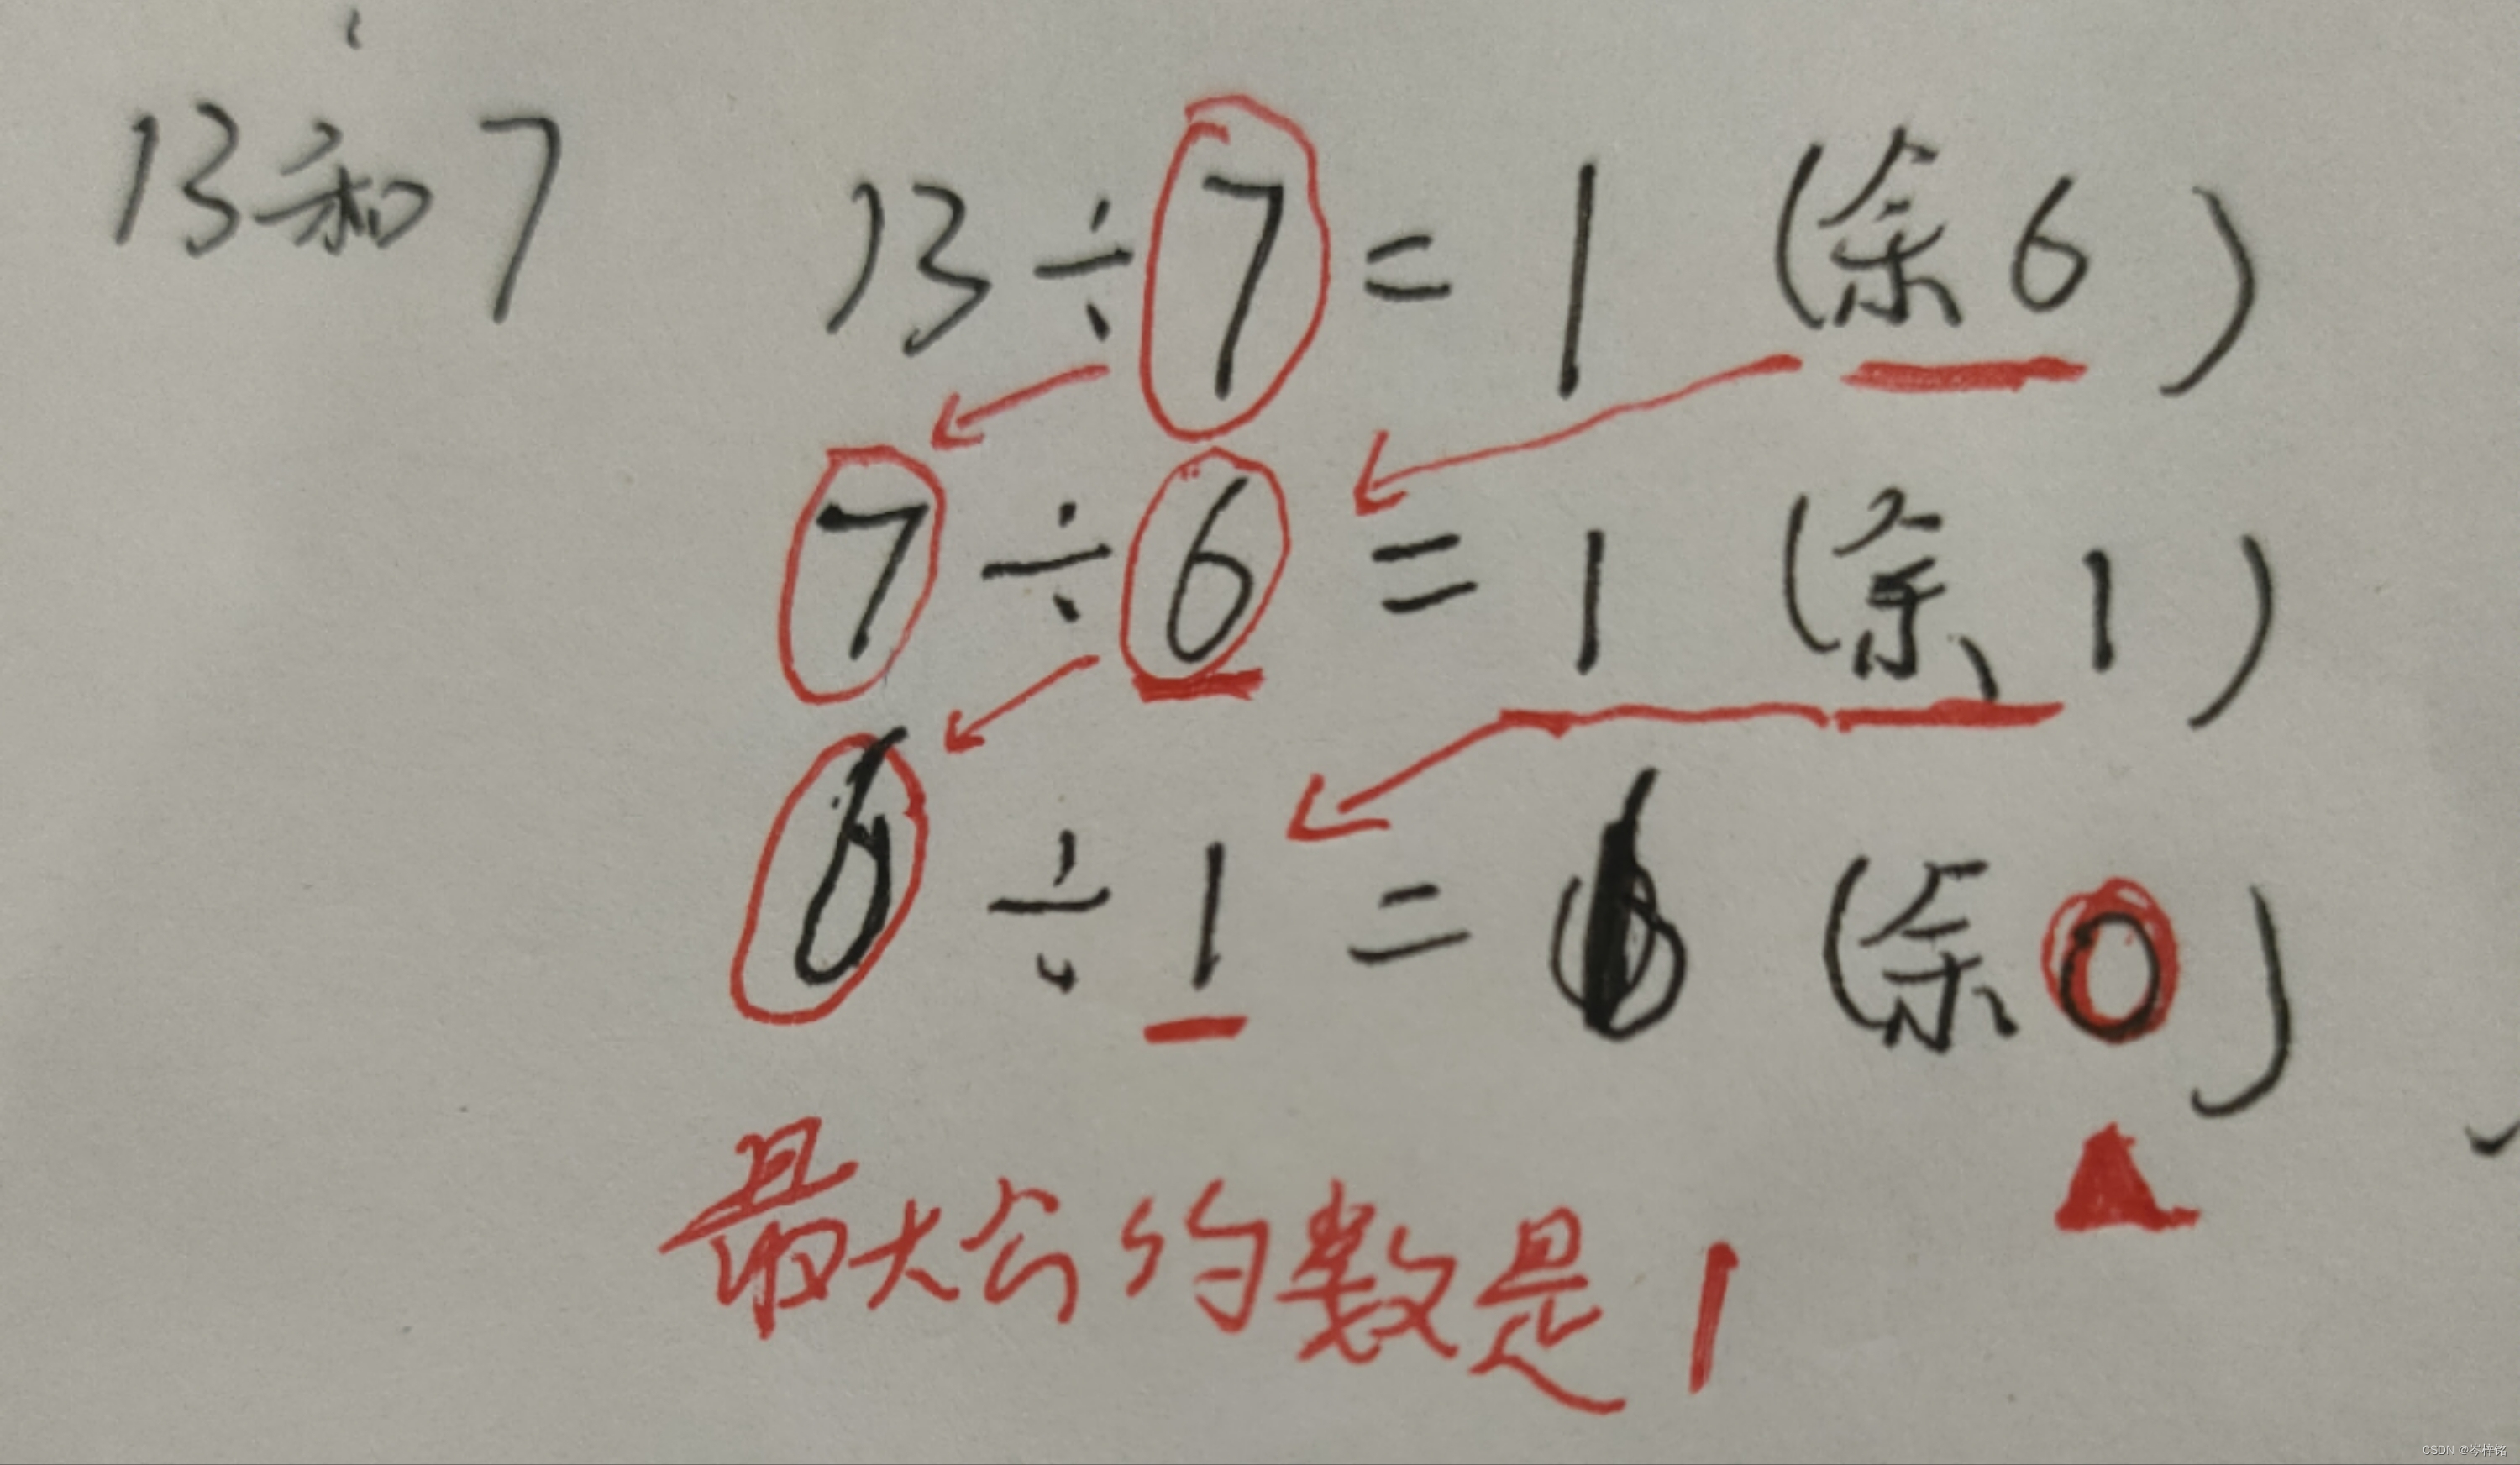 13和7
13÷7=1(余6)
7÷6=1(余1)
6÷1=6(余0)
最大公约数是1
CSDN @岑梓铭